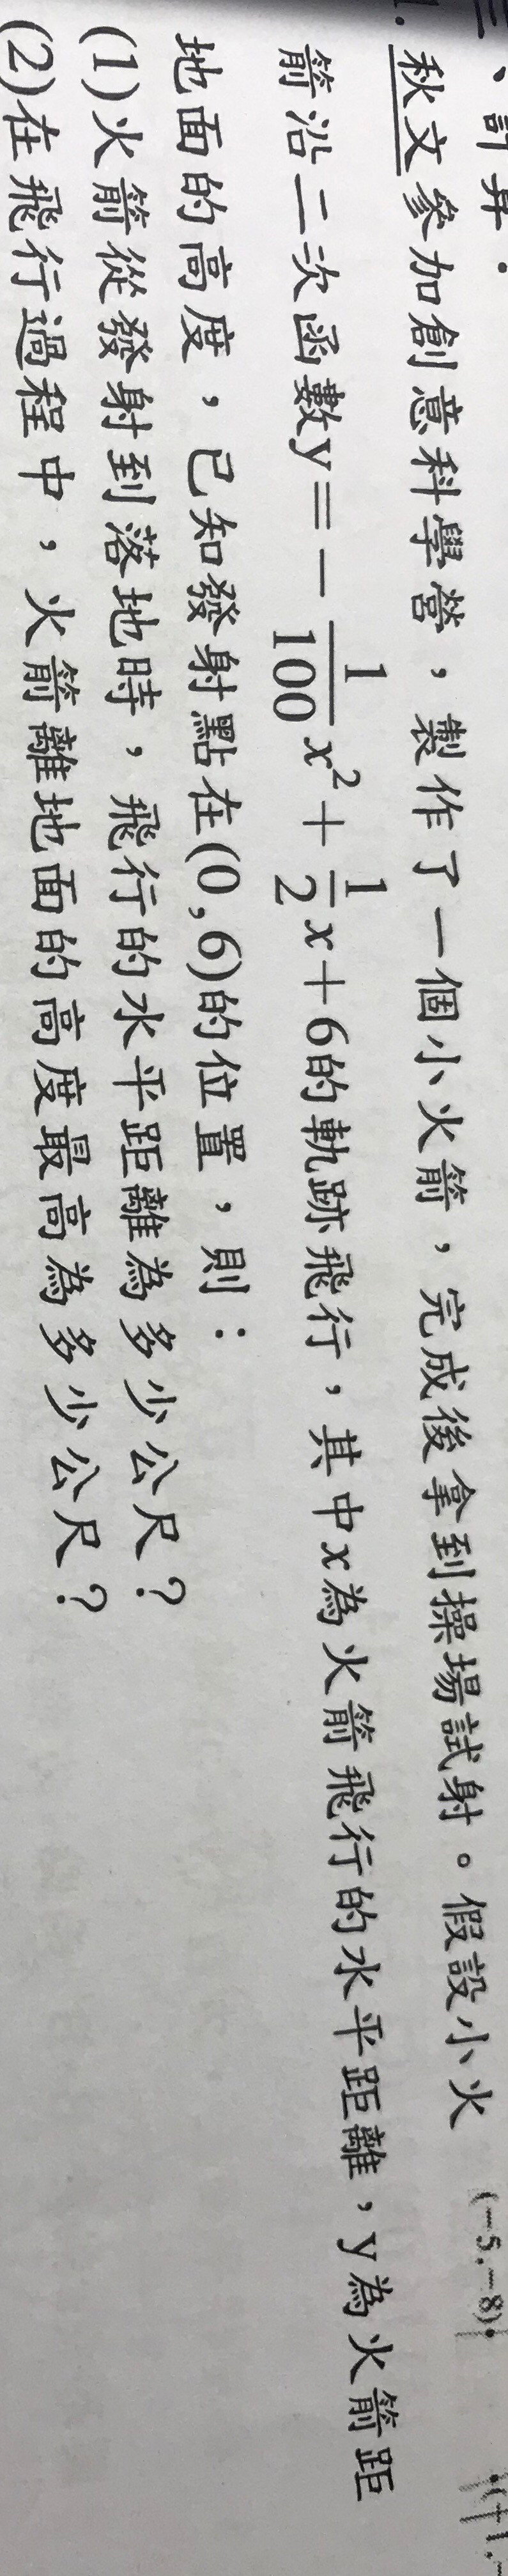 三、計算：
1. 秋文參加創意科學營，製作了一個小火箭，完成後拿到操場試射。假設小火
箭沿二次函數y=-\frac{1}{100}x²+\frac{1}{2}x+6的軌跡飛行，其中x為火箭飛行的水平距離，y為火箭距
地面的高度，已知發射點在(0,6)的位置，則：
(1)火箭從發射到落地時，飛行的水平距離為多少公尺？
(2)在飛行過程中，火箭離地面的高度最高為多少公尺？
(-5,-8)